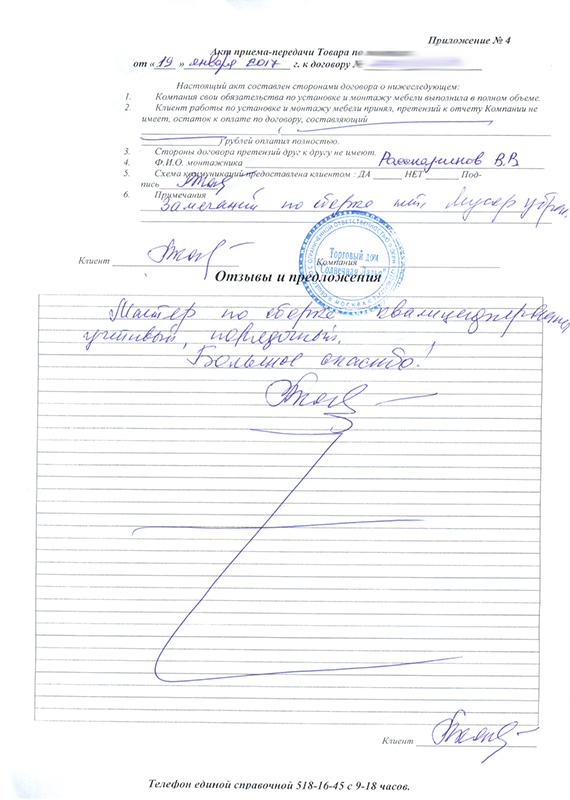 Приложение № 4
Акт приема-передачи Товара по
от « 19 » января 2017 г. к договору №
Настоящий акт составлен сторонами договора о нижеследующем:
1. Компания свои обязательства по установке и монтажу мебели выполнила в полном объеме.
2. Клиент работы по установке и монтажу мебели принял, претензий к отчету Компании не
имеет, остаток к оплате по договору, составляющий
(
)рублей оплатил полностью.
3. Стороны договора претензий друг к другу не имеют.
4. Ф.И.О. монтажника В.В
5. Схема коммуникаций предоставлена клиентом : ДА НЕТ Под-
пись
6. Примечания
Замечаний по сборке нет. Мусор убран.
Клиент Компания
Торговый дом
"Солнечная
Отзывы и предложения
Мастер по сборке квалифицированный,
учтивый, порядочный.
Большое спасибо!
Клиент
Телефон единой справочной 518-16-45 с 9-18 часов.